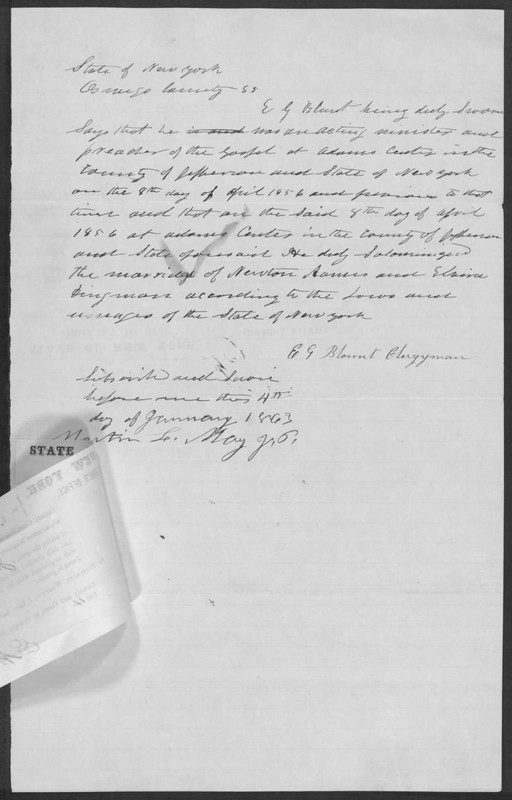 State of New York
Oswego County SS
E G Blunt being duly sworn
Says that he is and was an acting minister and
preacher of the Gospel at Adams Center in the
County of Jefferson and State of New York
on the 8th day of April 1856 and previous to that
time and that on the said 8th day of April
1856 at Adams Center in the county of Jefferson
and State foresaid He duly Solomnized
the marridge of Newton and
Dingman according to the Laws and
useages of the State of New York
E G Blount Clergyman
before me this 4th
day of January 1863
Martin L. May J. P.
STATE
NEW YORK